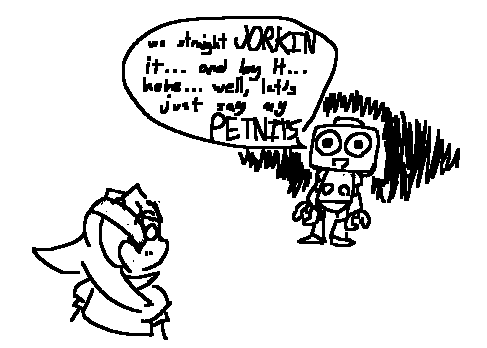 we straight JORKIN
it... and by It...
hehe... well, let's
just say my
PETNITS